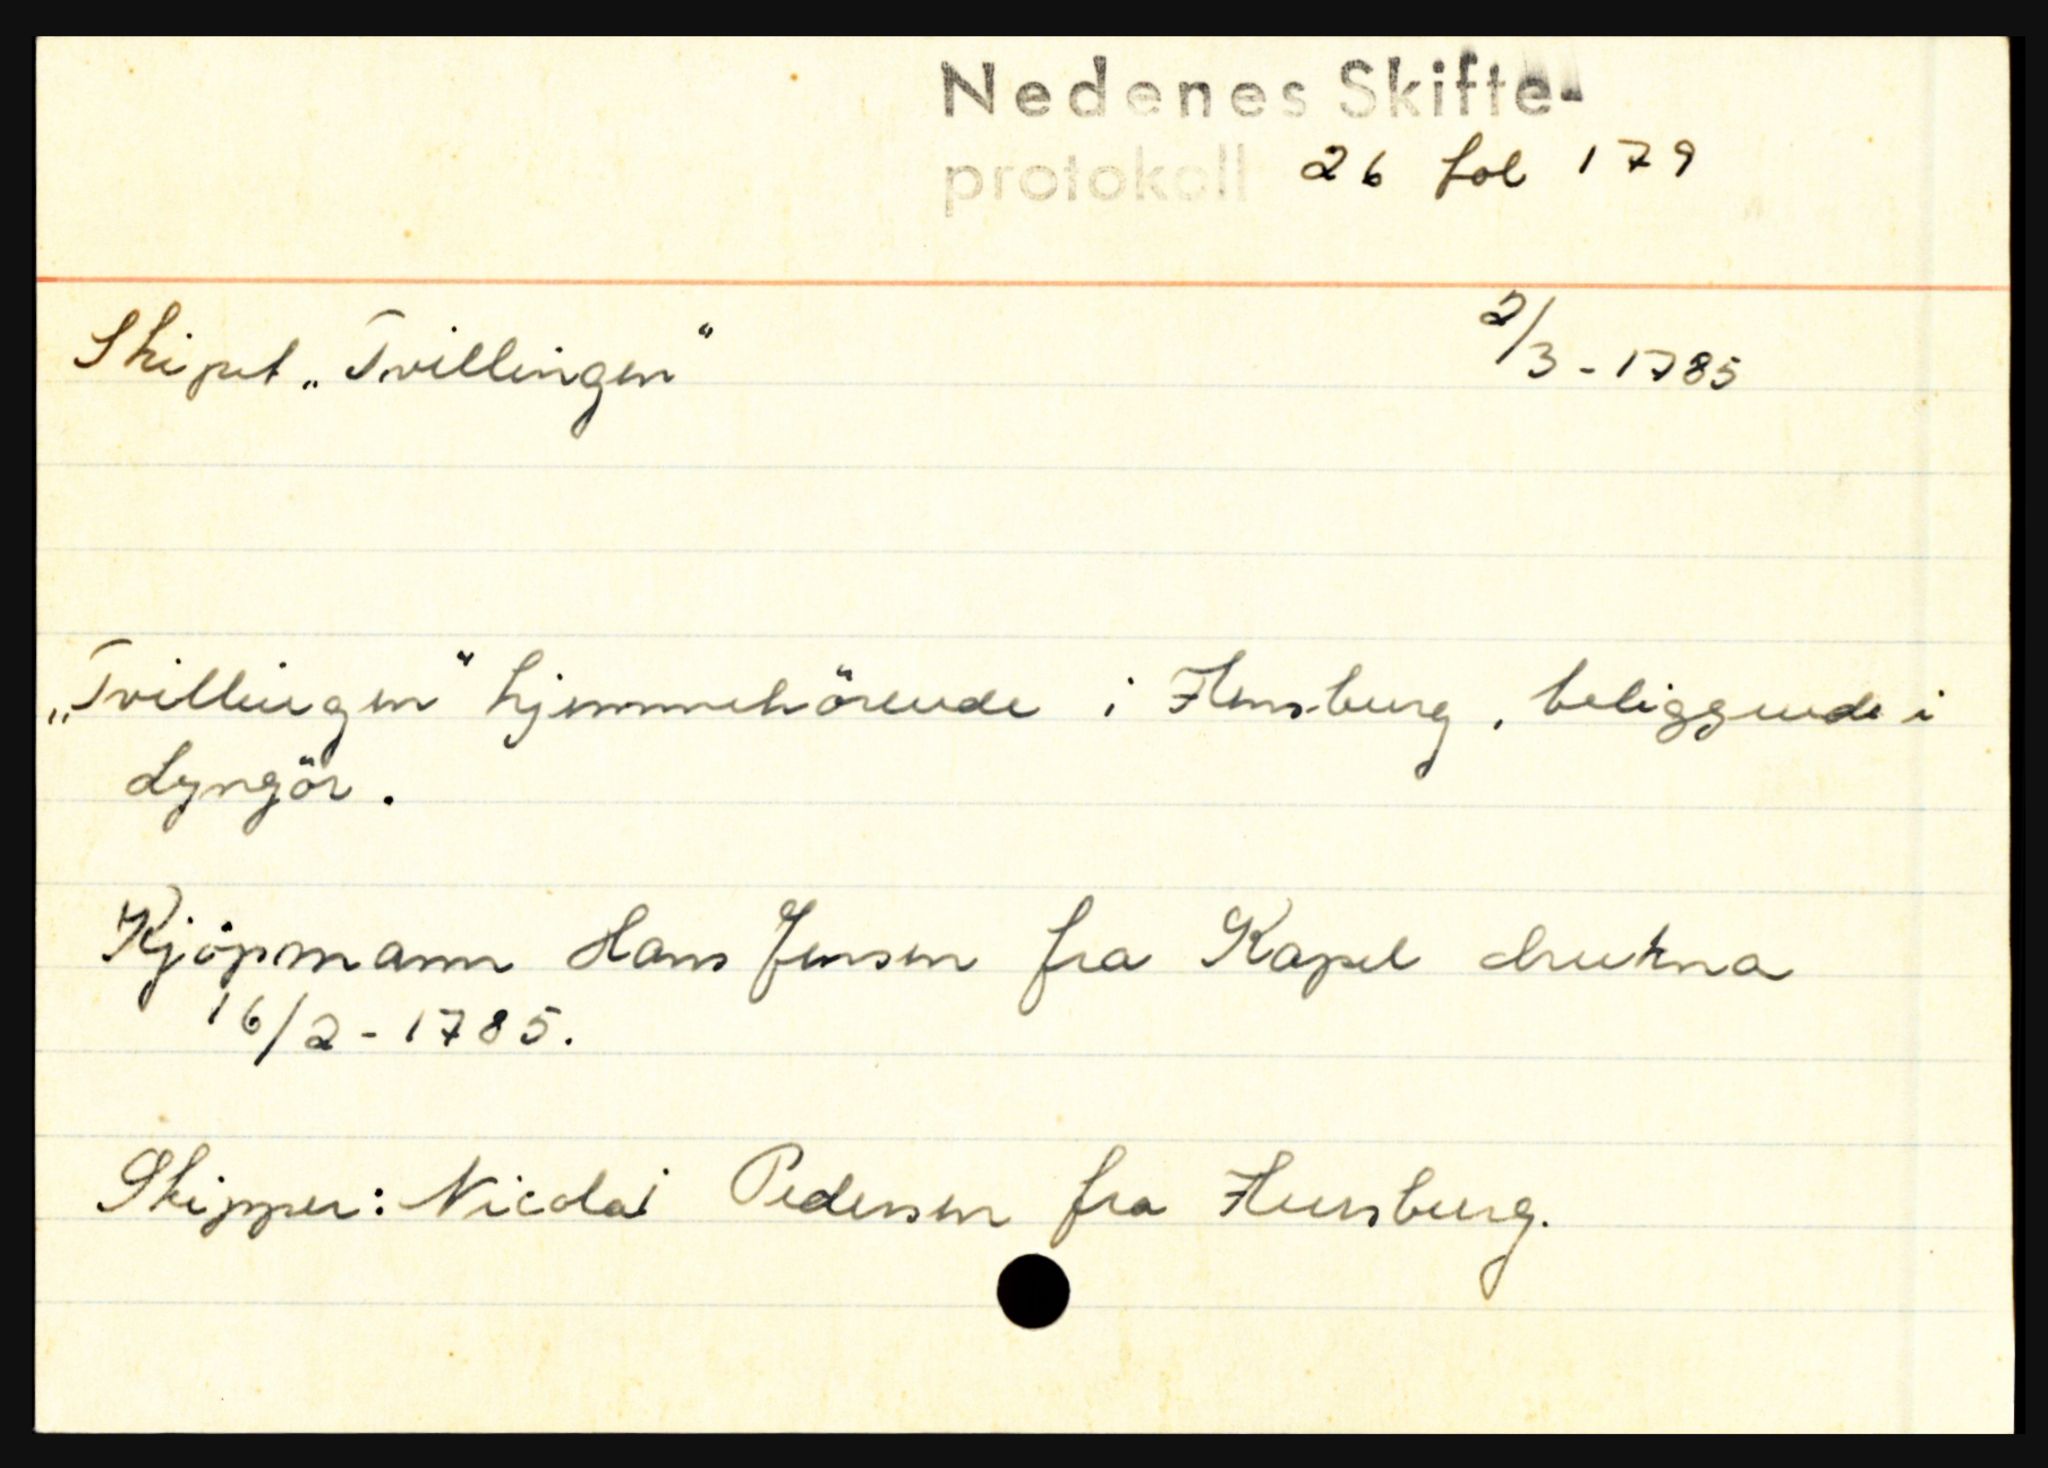 Nedenes Skifte-
protokoll 26 fol 179
Skipet „Tvillingen“ 2/3 - 1785
„Tvillingen“ hjemmehörende i Flensburg, beliggende i
Lyngör.
Kjöpmann Hans Jensen fra Kapel drukna
16/2 - 1785.
Skipper: Nicolai Pedersen fra Flensburg.